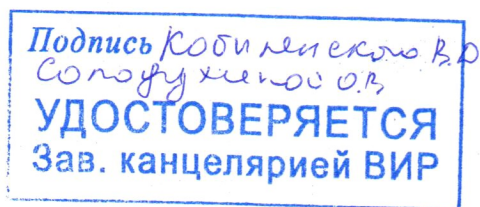 Подпись Кобылянского В.Д
Солодухиной О.В
УДОСТОВЕРЯЕТСЯ
Зав. канцелярией ВИР